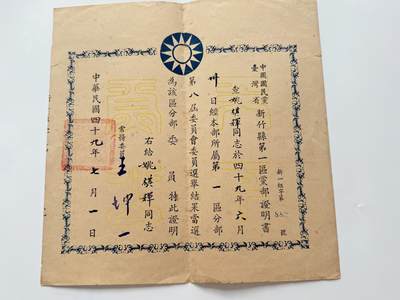 中國國民黨
臺灣省
新竹縣第一區黨部證明書
新一組字第 號
查姚煐禪同志於四十九年六月
卅日經本部所屬第一區分部
第八屆委員會委員選舉結果當選
為該區分部委員特此證明
右給姚煐禪同志
常務委員
王坤一
中華民國四十九年七月一日